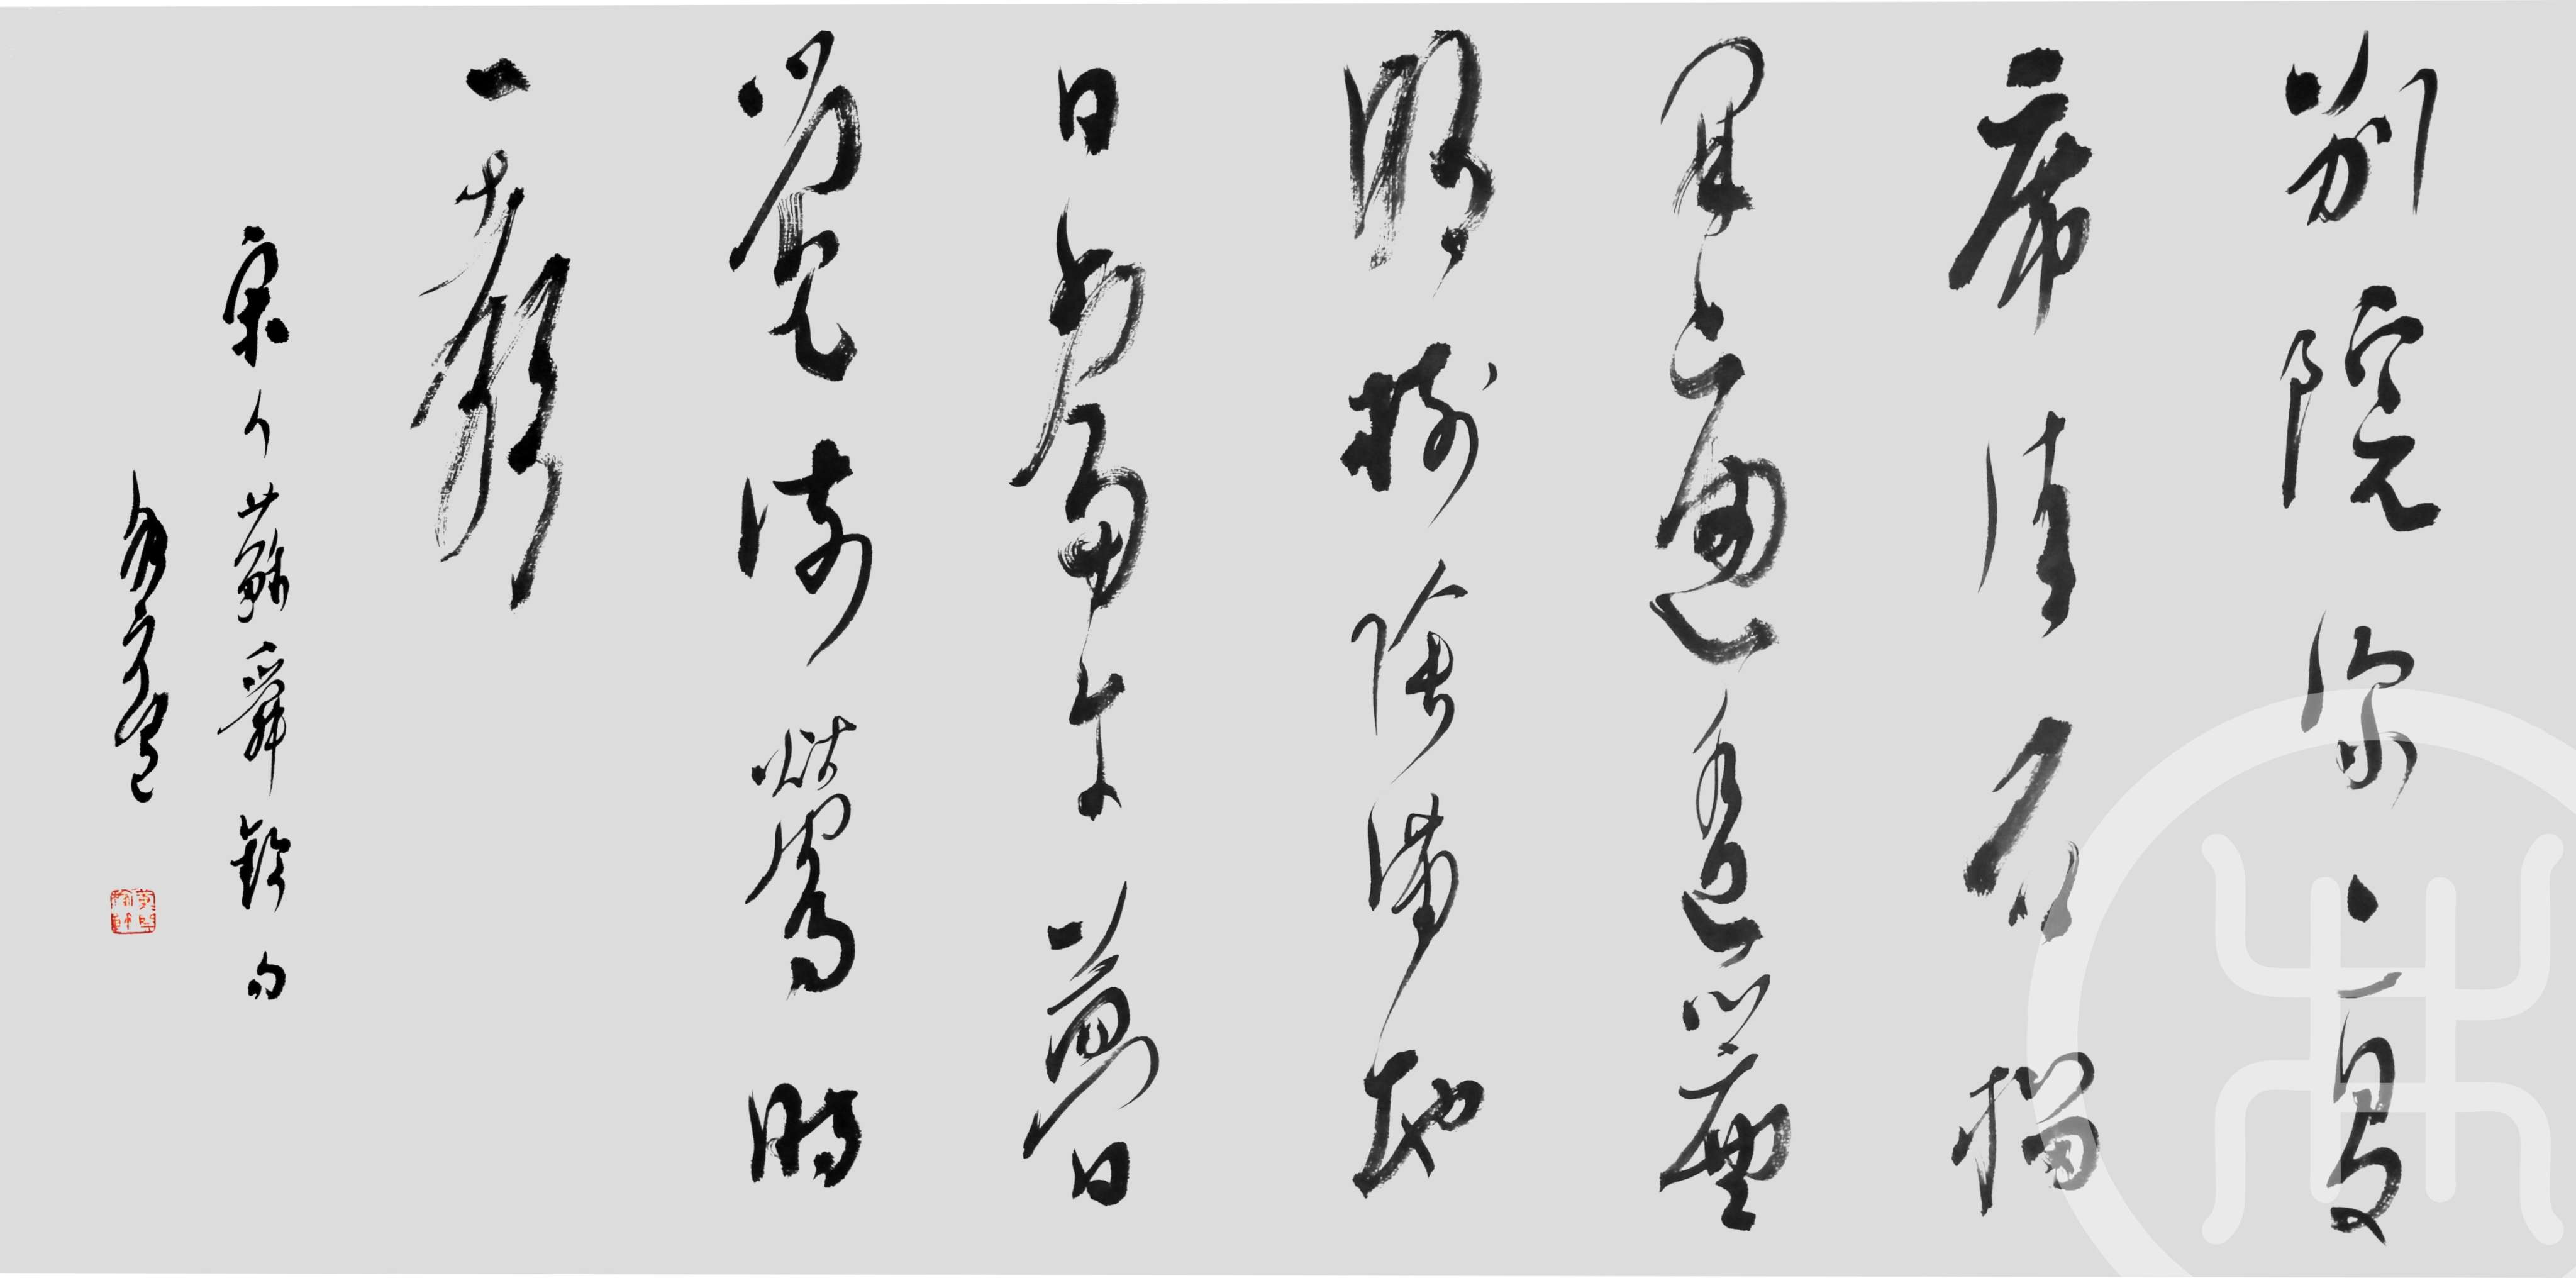 別院深深夏
席清石榴
開遍透簾
明樹陰滿地
日當午夢
覺流鶯時
一聲
宋人蘇舜欽句